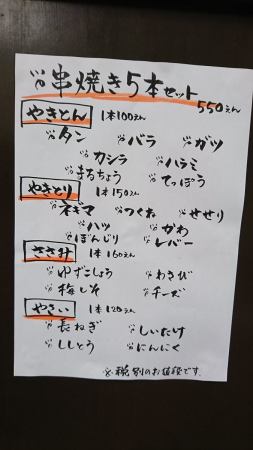 串焼き5本セット
550えん
やきとん 1本100えん
タン バラ ガツ
カシラ ハラミ
まるちょう てっぽう
やきとり 1本150えん
ネギマ つくね せせり
ハツ かわ
ぼんじり レバー
ささみ 1本160えん
ゆずこしょう わさび
梅しそ チーズ
やさい 1本120えん
長ねぎ しいたけ
ししとう にんにく
※税別のお値段です。